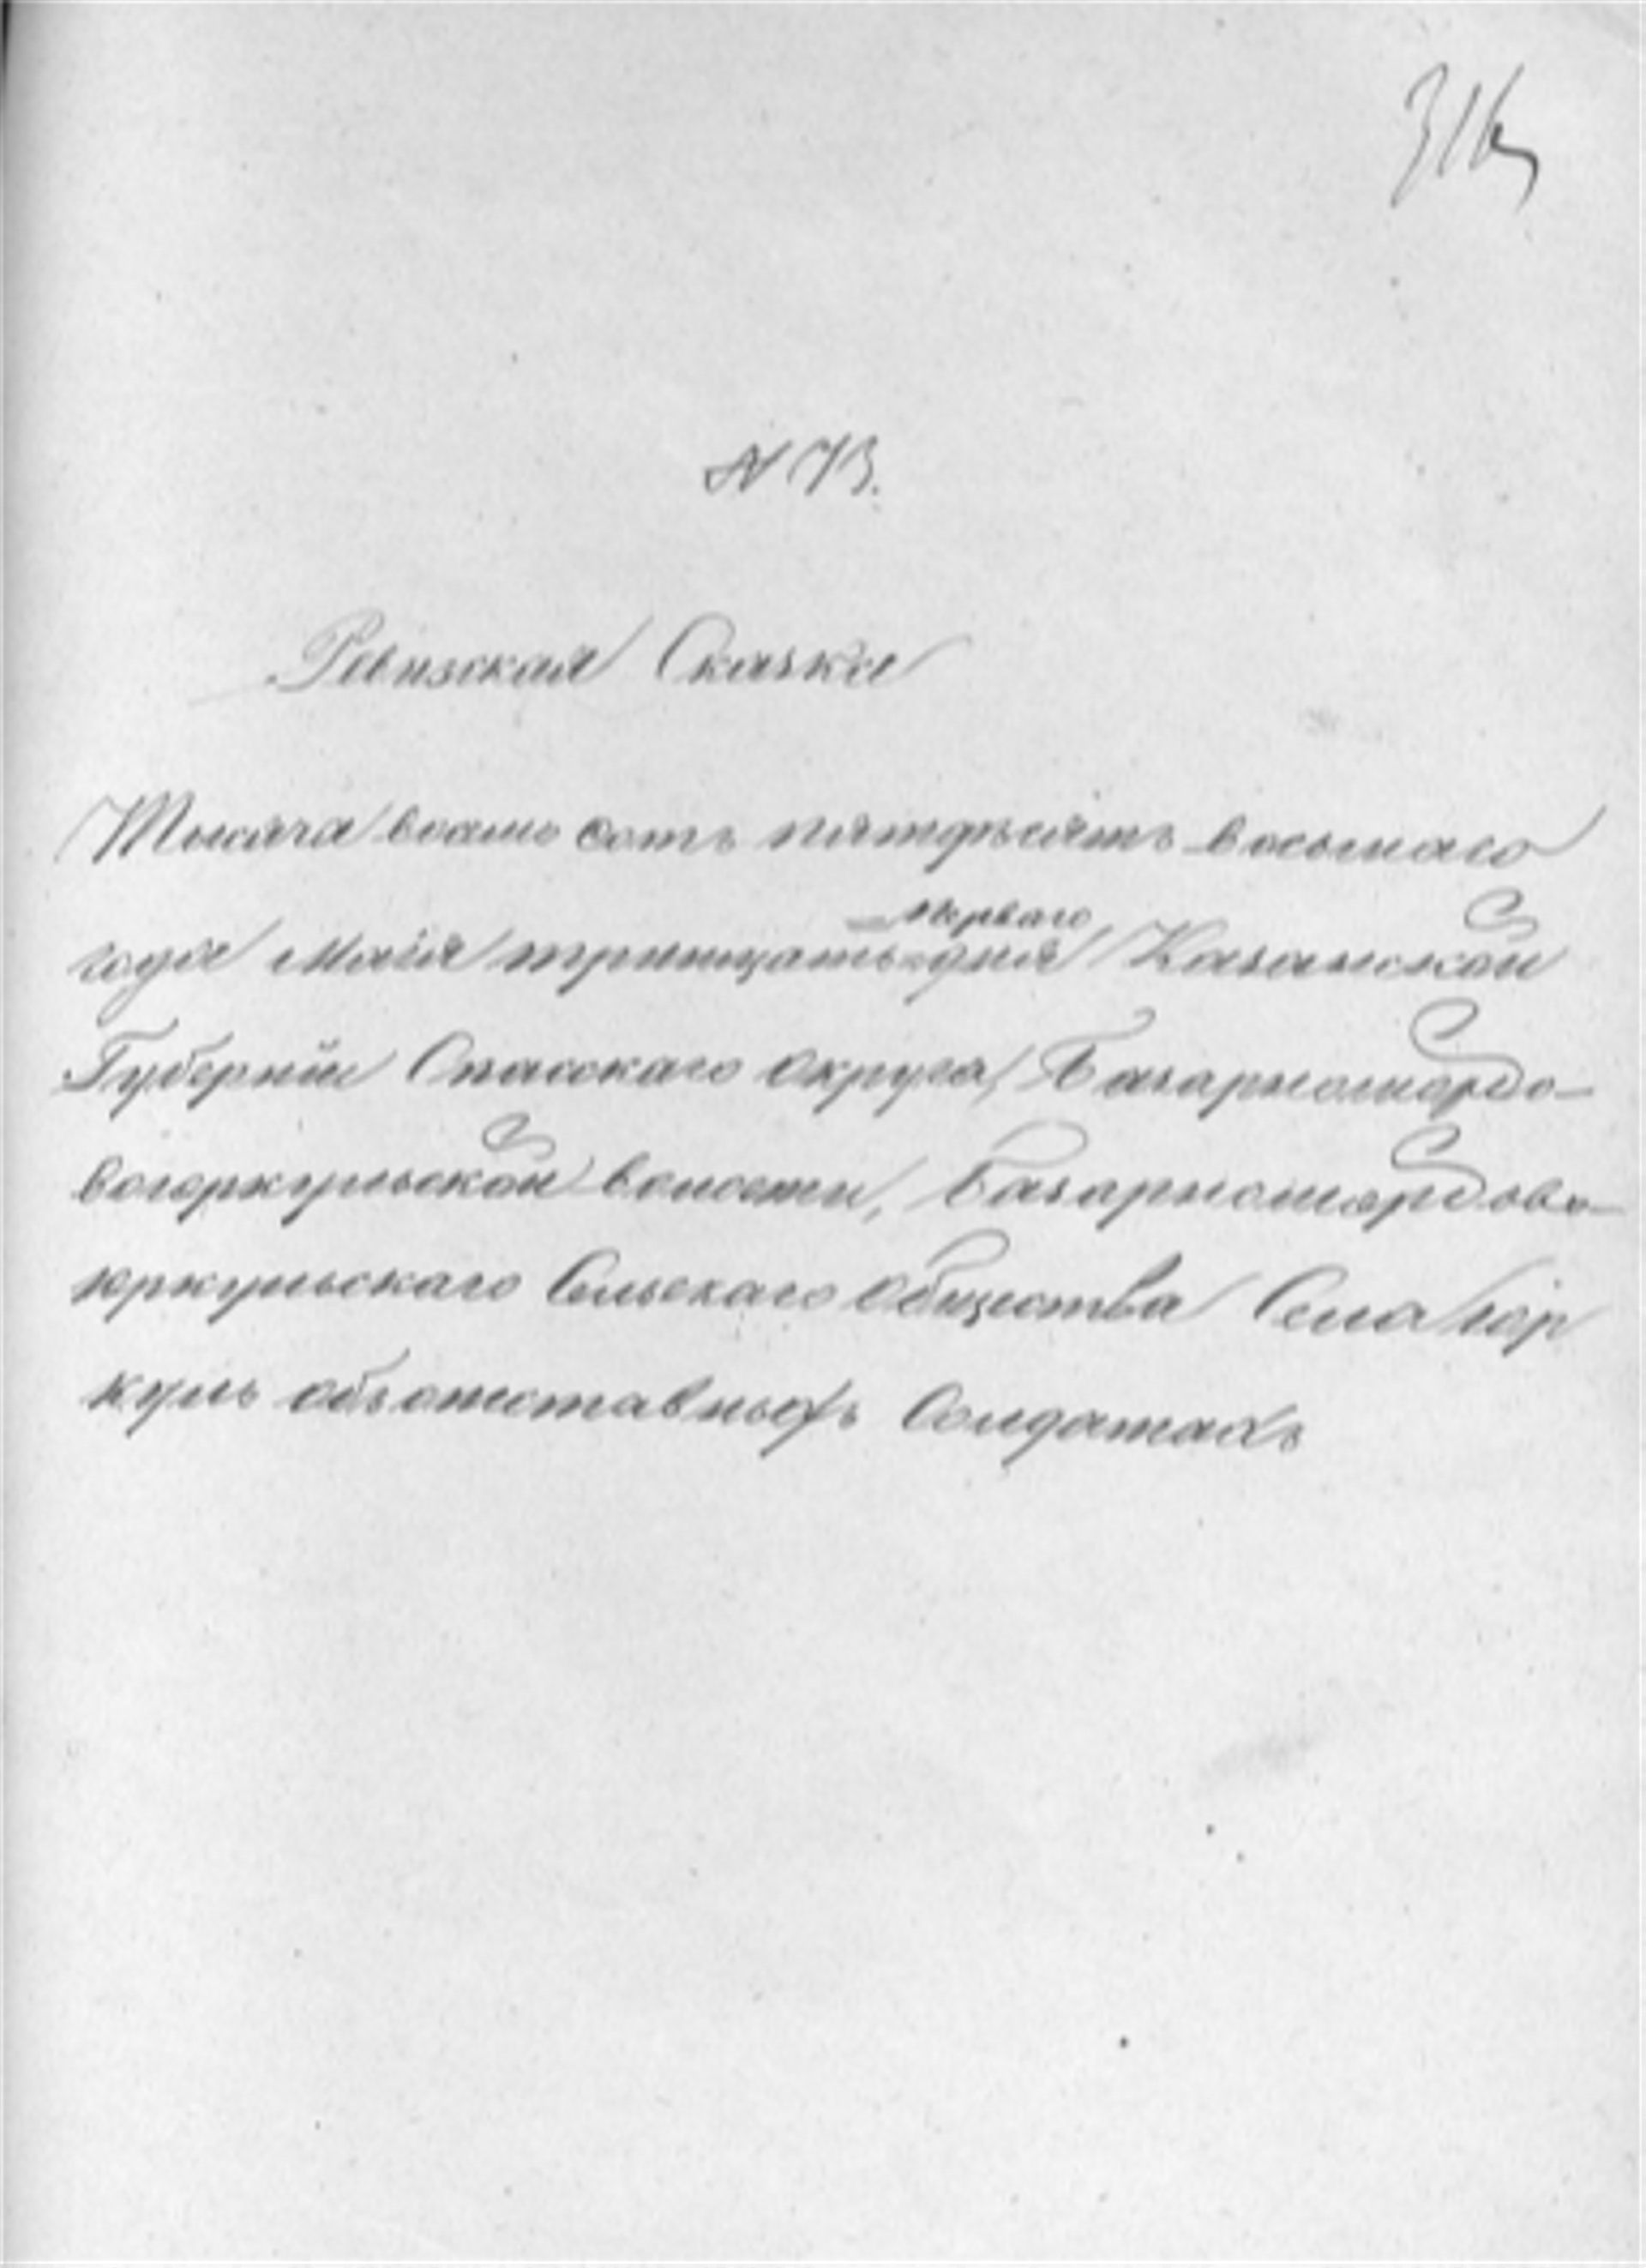 316
N 73.
Ревизская Сказка
Тысяча восемь сотъ пятдесятъ восьмаго
года Маiя тритцать перваго дня Казанской
Губернiи Спасскаго округа, Базарномордо-
воюркульской волости, Базарномордово-
юркульскаго Сельскаго общества Села Юр
куль объ отставныхъ Солдатахъ